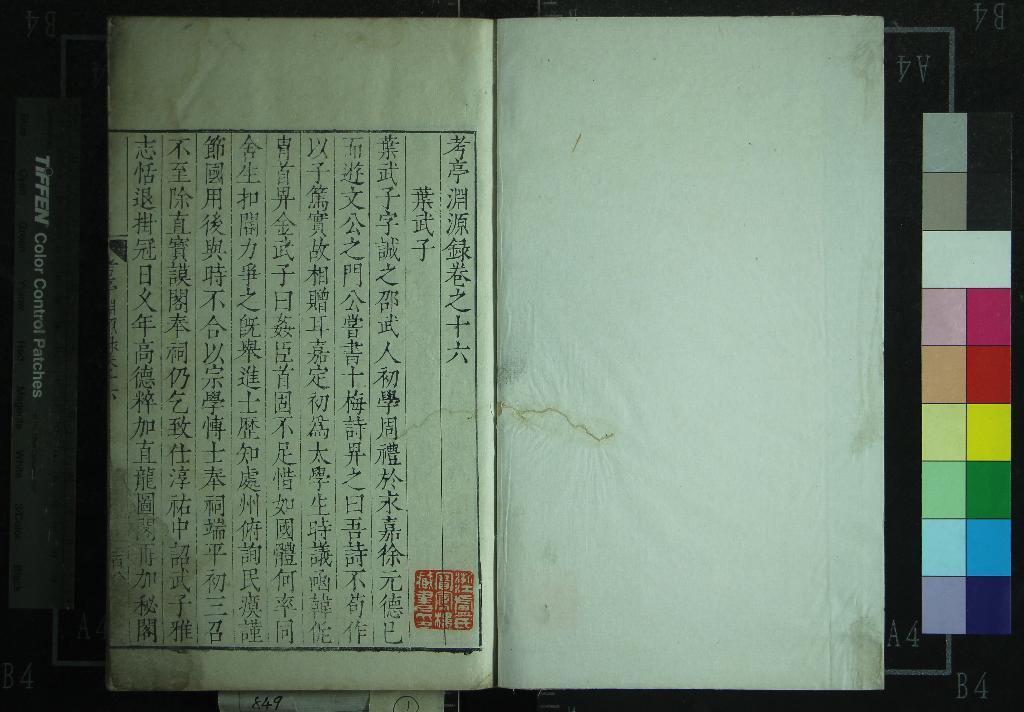 考亭淵源錄卷之十六
葉武子
葉武子字誠之邵武人初學周禮於永嘉徐元德已
而遊文公之門公嘗書十梅詩畀之曰吾詩不苟作
以子篤實故相贈耳嘉定初為太學生時議函韓侂
胄首畀金武子曰姦臣首固不足惜如國體何率同
舍生扣閽力爭之旣舉進士歷知處州俯詢民瘼謹
節國用後與時不合以宗學博士奉祠端平初三召
不至除直寳謨閣奉祠仍乞致仕淳祐中詔武子雅
志恬退掛冠日乆年高德粹加直龍圖閣再加秘閣
TIFFEN Color Control Patches
A4
B4
A4
B4
A4
B4
B4
849
1